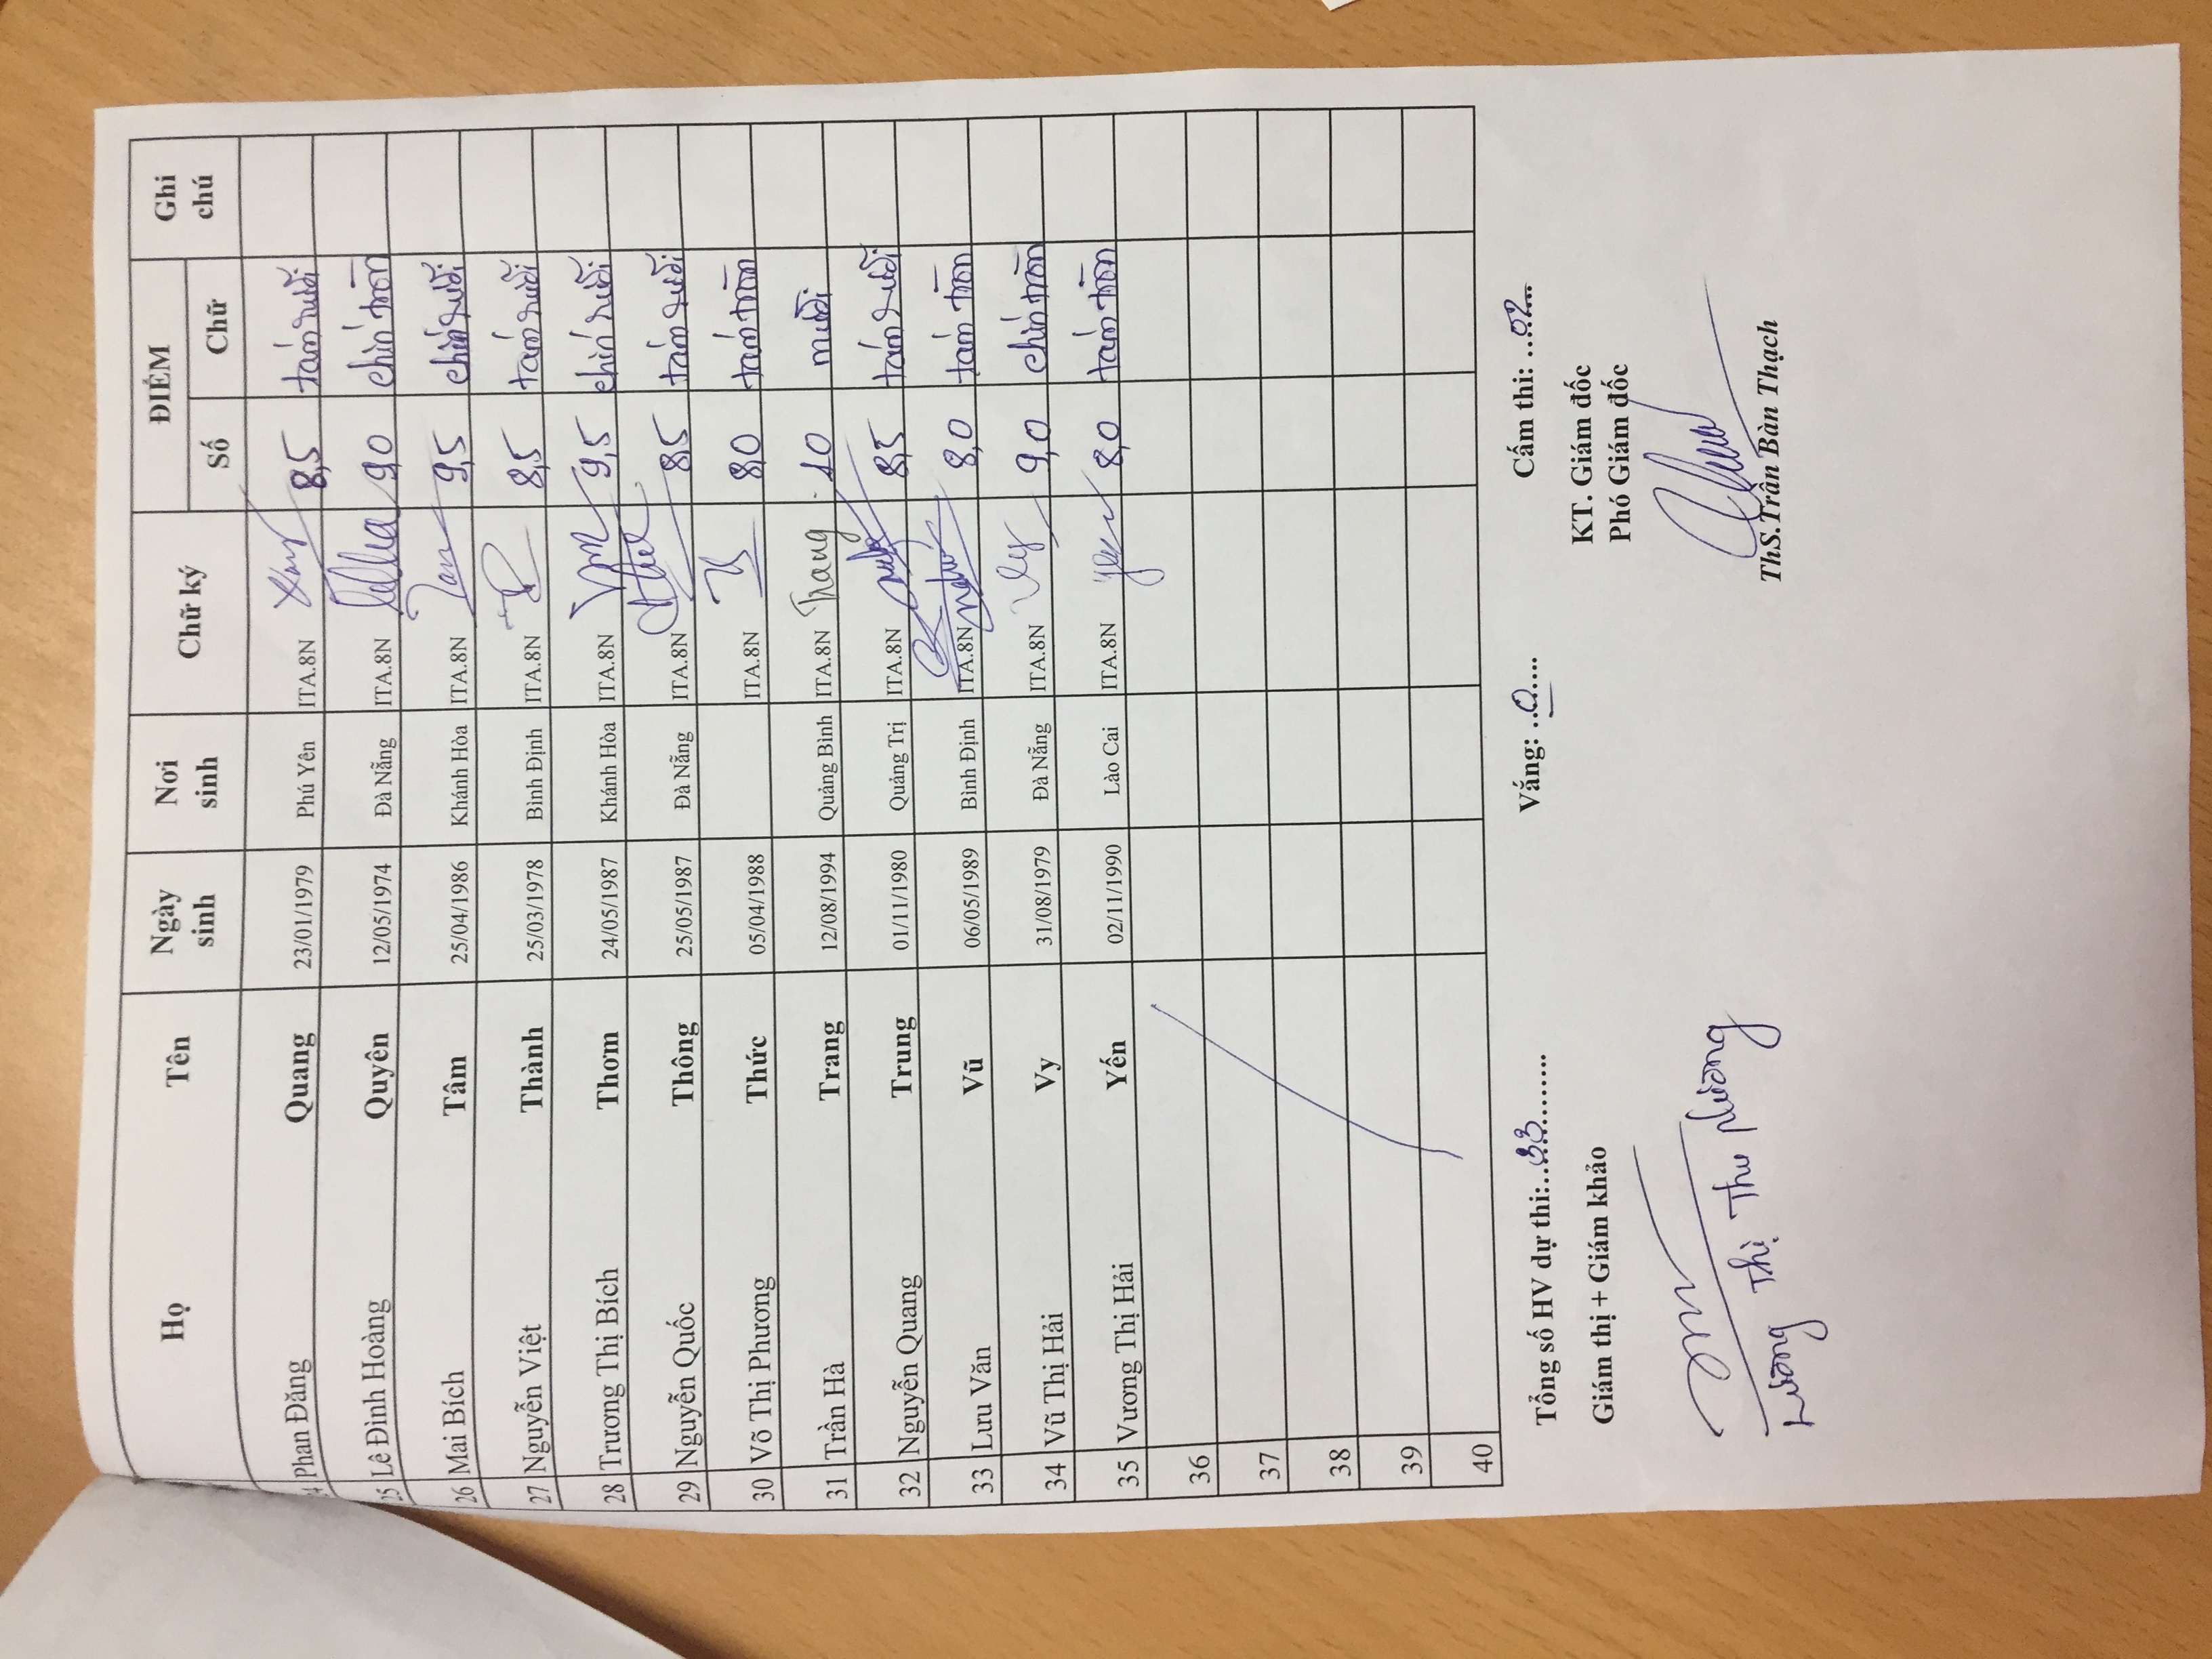 Họ Tên Ngày sinh Nơi sinh Chữ ký ĐIỂM Ghi chú
Số Chữ
Phan Đăng Quang 23/01/1979 Phú Yên ITA.8N 8,5 tám rưỡi
25 Lê Đình Hoàng Quyên 12/05/1974 Đà Nẵng ITA.8N 9,0 chín tròn
26 Mai Bích Tâm 25/04/1986 Khánh Hòa ITA.8N 9,5 chín rưỡi
27 Nguyễn Việt Thành 25/03/1978 Bình Định ITA.8N 8,5 tám rưỡi
28 Trương Thị Bích Thơm 24/05/1987 Khánh Hòa ITA.8N 9,5 chín rưỡi
29 Nguyễn Quốc Thông 25/05/1987 Đà Nẵng ITA.8N 8,5 tám rưỡi
30 Võ Thị Phương Thức 05/04/1988 ITA.8N 8,0 tám tròn
31 Trần Hà Trang 12/08/1994 Quảng Bình ITA.8N Trang 10 mười
32 Nguyễn Quang Trung 01/11/1980 Quảng Trị ITA.8N 8,5 tám rưỡi
33 Lưu Văn Vũ 06/05/1989 Bình Định ITA.8N 8,0 tám tròn
34 Vũ Thị Hải Vy 31/08/1979 Đà Nẵng ITA.8N Vy 9,0 chín tròn
35 Vương Thị Hải Yến 02/11/1990 Lào Cai ITA.8N 8,0 tám tròn
36
37
38
39
40
Tổng số HV dự thi:...33......... Vắng: ..0..... Cấm thi: ..02...
Giám thị + Giám khảo KT. Giám đốc
Phó Giám đốc
Lương Thị Thu Phương
ThS.Trần Bàn Thạch